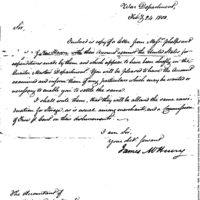 War Department,
Feb. 24 1800.
Sir,
Inclosed is copy of a letter from Messrs. Phelps and
their Account against the United States for
expenditures made by them and which appears to have been chiefly in the
Quarter Master Department. You will be pleased to have the Account
examined and inform them if any particulars which may be wanted or
necessary to enable you to settle the same.
I shall write them, that they will be allowed the same
for Storage, as is usual among merchants, and a Commission
of Cent. on their disbursements.
I am Sir,
Your obt. servant
James McHenry
The Accountant of